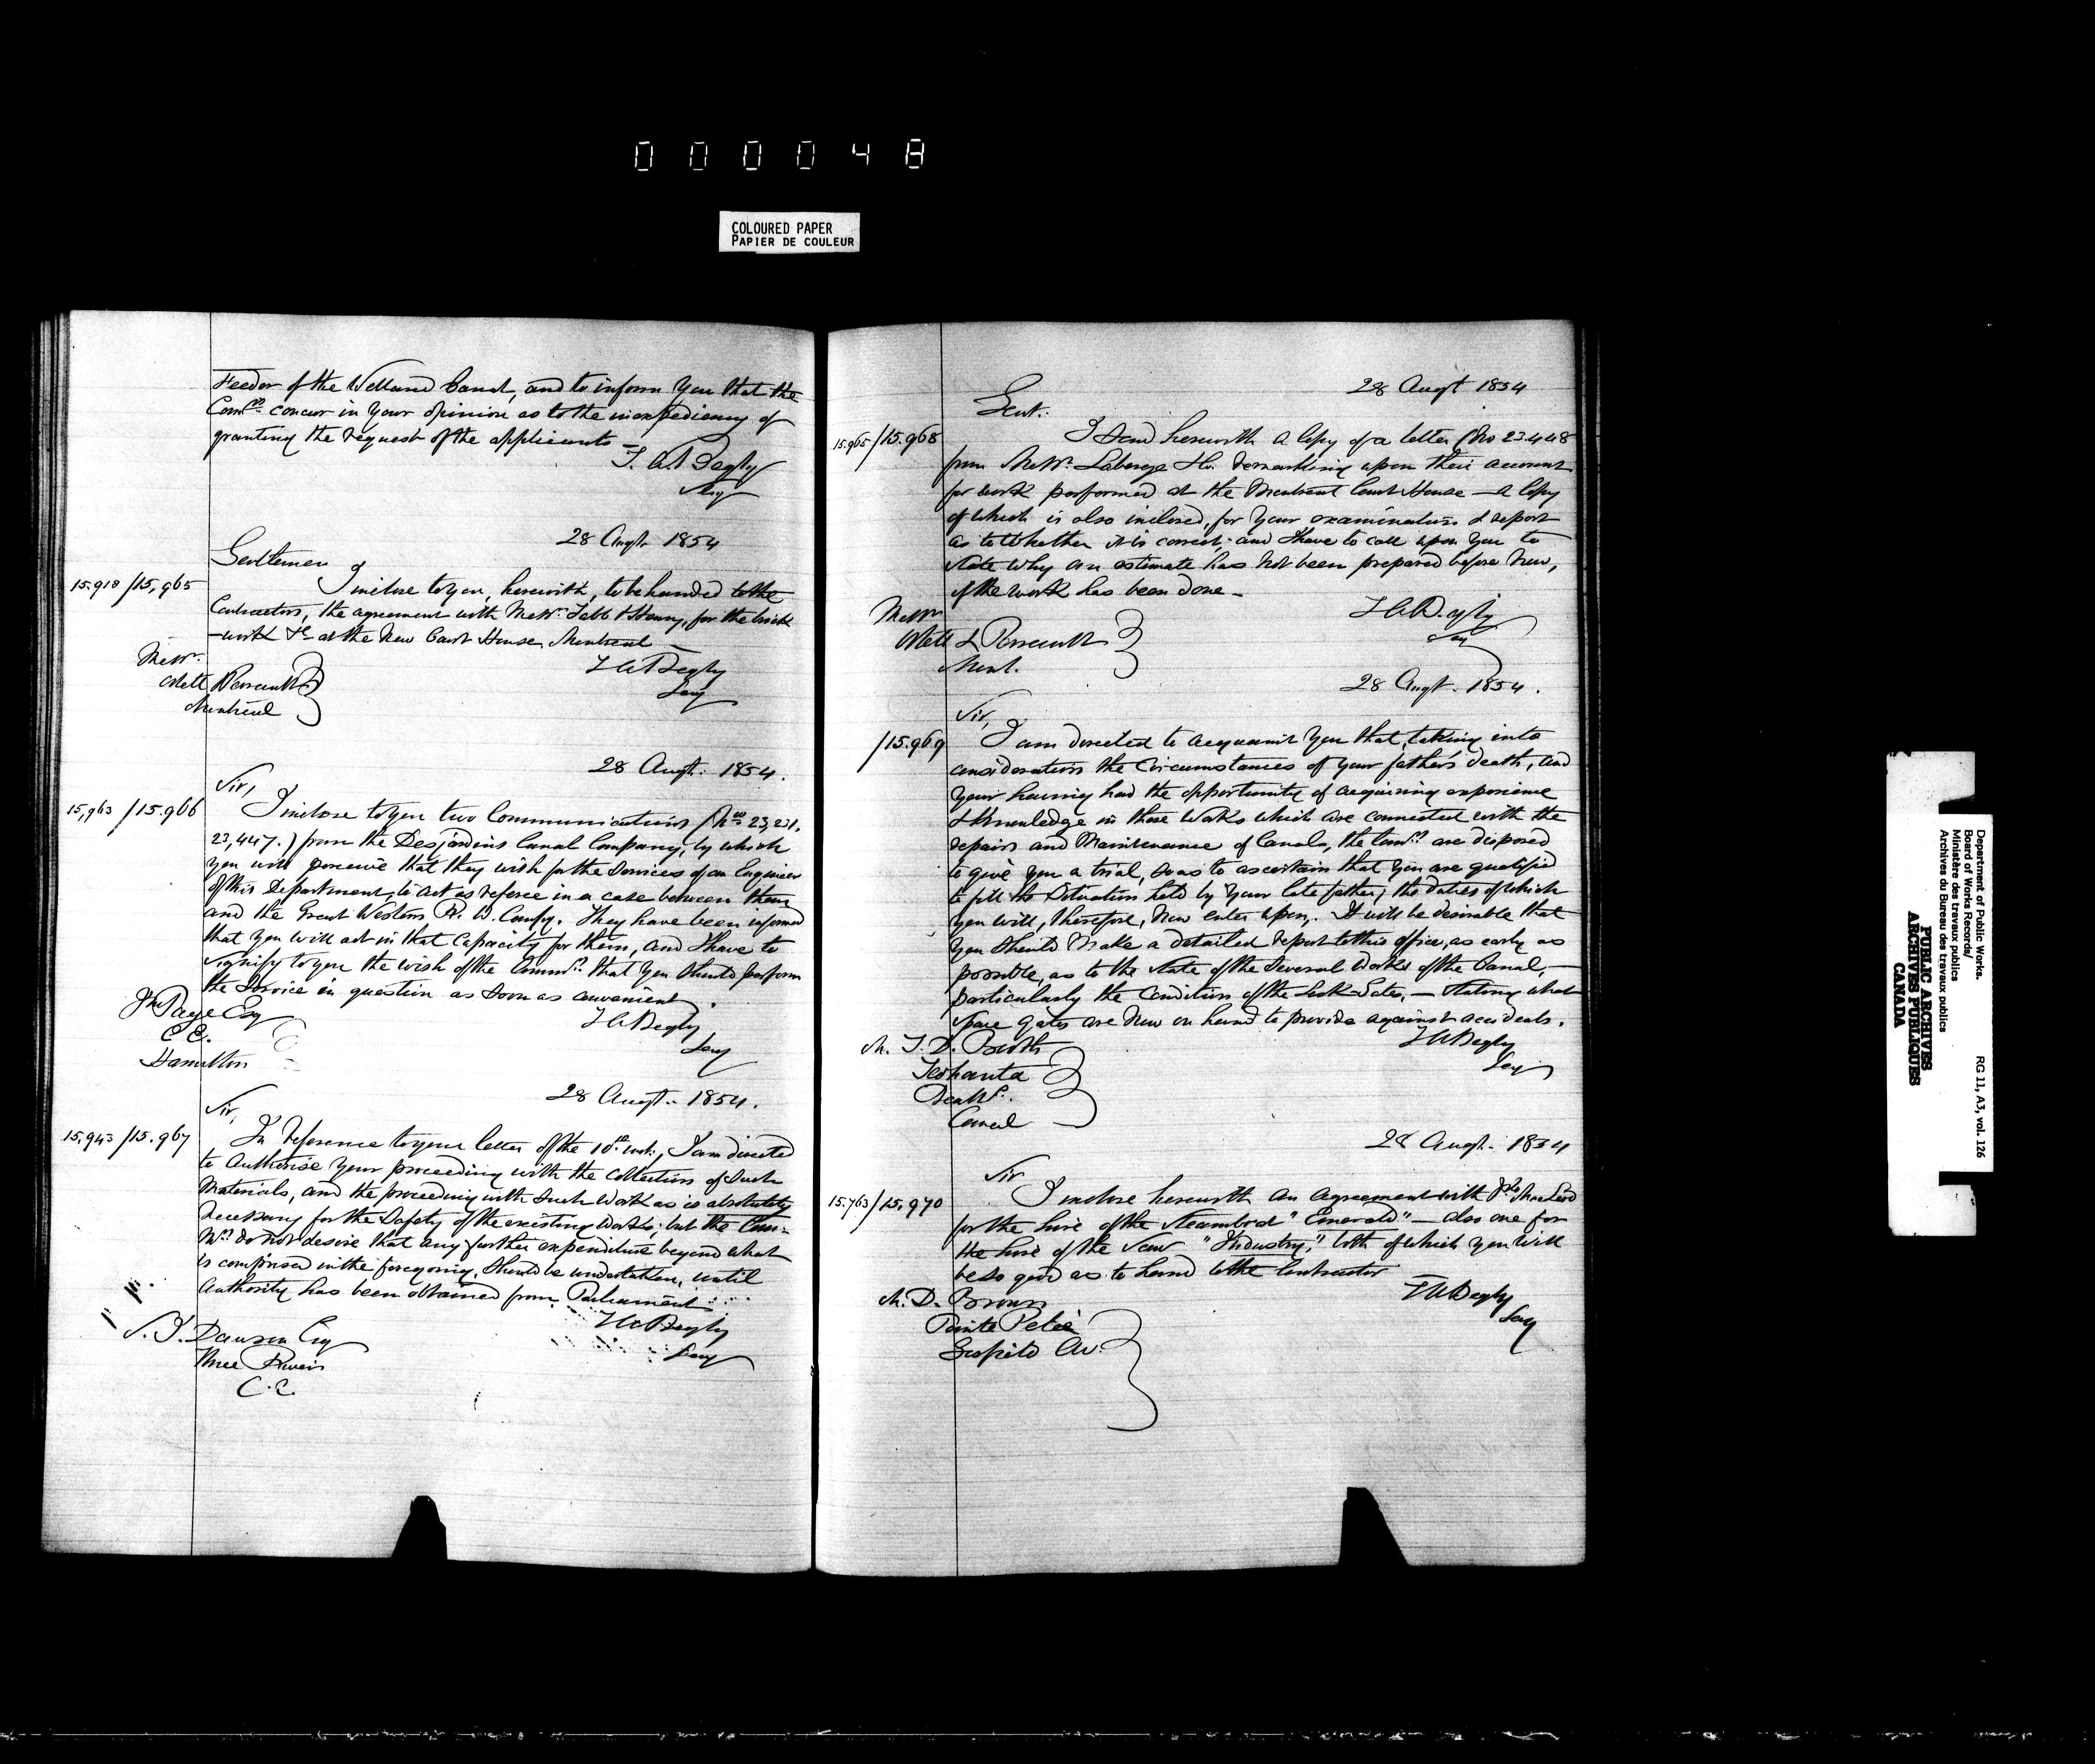 000048
COLOURED PAPER
PAPIER DE COULEUR
Feeder of the Welland Canal, and to inform you that the
Comrs. concur in your opinion as to the inexpediency of
granting the request of the applicants —
T. A. Begly
Secy
28 Augt. 1854
Gentlemen
15,918/15,965
I inclose to you, herewith, to be handed to the
Contractors, the agreement with Messrs. & Henry, for the brick
-work &c at the New Court House, Montreal —
T A Begly
Secy
Messrs.
Ostell Perrault
Montreal
28 Augt. 1854.
Sir,
15,963/15.966
I inclose to you two Communications (Nos 23,231,
23,447.) from the Desjardins Canal Company, by which
you will perceive that they wish for the services of an Engineer
of this Department, to act as referee in a case between them
and the Great Western R. W. Compy. They have been informed
that you will act in that capacity for them, and I have to
signify to you the wish of the Commrs. that you should perform
the service in question as soon as convenient.
T A Begly
Secy
Jno Page Esq
C.E.
Hamilton
28 Augt. 1854.
Sir,
15.943/15.967
In reference to your letter of the 10th inst, I am directed
to authorise your proceeding with the collection of such
Materials, and the proceeding with such work as is absolutely
necessary for the safety of the existing works; but the Com-
Mrs. do not desire that any further expenditure beyond what
is comprised in the foregoing, should be undertaken, until
Authority has been obtained from Parliament
T A Begly
Secy
S. J. Dawson Esq
Three Rivers
C.E.
28 Augt 1854
Gent.
15.965/15.968
I send herewith a Copy of a letter (No 23.448
from Messrs. Laberge &c. remarking upon their account
for work performed at the Montreal Court House — a Copy
of which is also inclosed, for your examination & report
as to whether it is correct; and I have to call upon you to
state why an estimate has not been prepared before now,
if the work has been done —
T A Begly
Secy
Messrs
Ostell & Perrault
Montl.
28 Augt. 1854.
Sir,
/15.969
I am directed to acquaint you that, taking into
consideration the Circumstances of your father's death, and
your having had the opportunity of acquiring experience
& knowledge in those works which are connected with the
repairs and Maintenance of Canals, the Comrs. are disposed
to give you a trial, so as to ascertain that you are qualified
to fill the situation held by your late father; the duties of which
you will, therefore, now enter upon. It will be desirable that
you should make a detailed report to this office, as early as
possible, as to the state of the several works of the Canal, —
particularly the Condition of the Lock-Gates, — stating what
spare gates are now on hand to provide against accidents.
T A Begly
Secy
M. J. D. Booth
Beauhs.
Canal
28 Augt. 1854
Sir
15.763/15.970
I inclose herewith an agreement with MacLeod
for the hire of the Steamboat "Emerald" — also one for
the hire of the Scow "Industry," both of which you will
be so good as to hand to the Contractor
T A Begly
Secy
M. D. Brown
Department of Public Works.
Board of Works Records/
Ministère des travaux publics
Archives du Bureau des travaux publics
RG 11, A3, vol. 126
PUBLIC ARCHIVES
ARCHIVES PUBLIQUES
CANADA